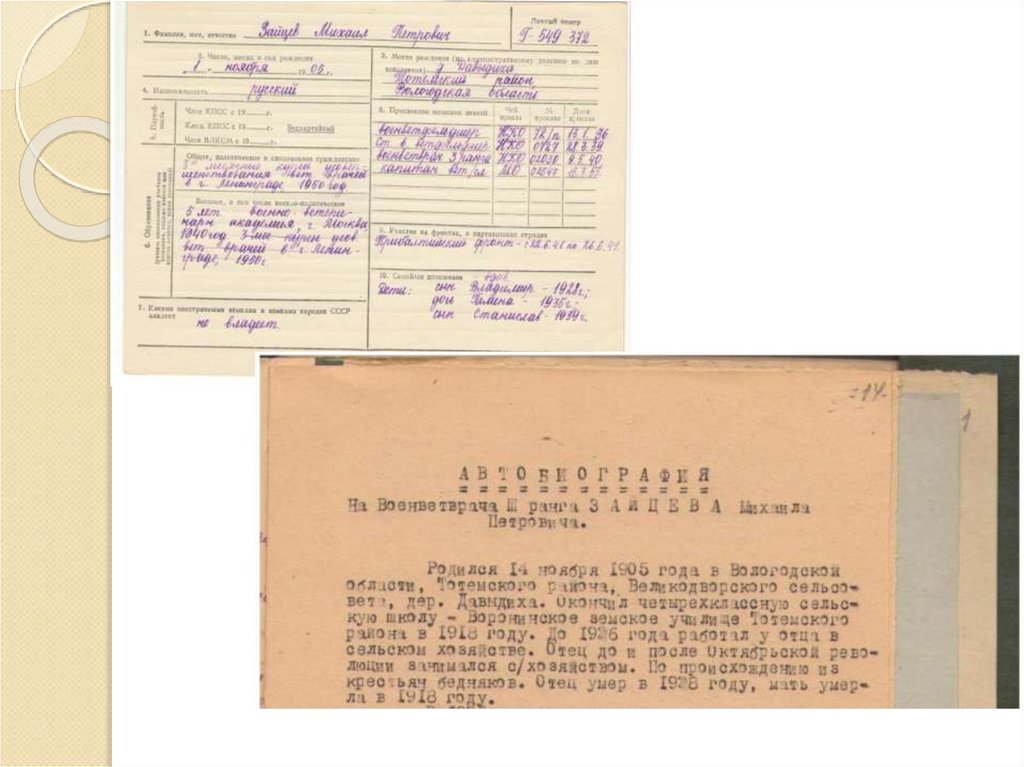 Личный номер
1. Фамилия, имя, отчество Зайцев Михаил Петрович
Г-549 372
2. Число, месяц и год рождения
1 - ноября 1905 г.
3. Место рождения
д. Давыдиха
Тотемский район,
Вологодская область
4. Национальность русский
5. Партийность
Член КПСС с 19 г.
Канд. КПСС с 19 г. Беспартийный
Член ВЛКСМ с 19 г.
8. Присвоение воинских званий
Чей приказ
№ приказа
Дата приказа
военветфельдшер НКО 72/п 13.1.36
Ст. в. ветфельдшер НКО 0727 28.3.39
военветврач 3 ранга НКО 02030 9.5.40
капитан вет/сл МО 02047
6. Образование
Общее, политическое и специальное гражданское
3х месячные курсы усовер-
шенствования вет. врачей
в г. Ленинграде, 1950 год.
Военное, в том числе военно-политическое
5 лет военно ветери-
нарн академия, г. Москва,
1940 год. 3 мес курсы усов.
вет врачей в г. Ленин-
граде, 1950 г
9. Участие на фронтах, в партизанских отрядах
Прибалтийский фронт - с 22.6.41 по 26.6.41.
10. Семейное положение - вдов
Дети: сын Владимир - 1928 г.;
доч - 1935 г.;
сын Станислав - 1939 г.
7. Какими иностранными языками и языками народов СССР
владеет не владеет
=14-
1
АВТОБИОГРАФИЯ
= = = = = = = = = = = = =
На Военветврача Ш ранга ЗАЙЦЕВА Михаила
Петровича.
Родился 14 ноября 1905 года в Вологодской
области, Тотемского района, Великодворского сельсо-
вета, дер. Давыдиха. Окончил четырехклассную сельс-
кую школу - Воронинское земское училище Тотемского
района в 1918 году. До 1926 года работал у отца в
сельском хозяйстве. Отец до и после Октябрьской рево-
люции занимался с/хозяйством. По происхождению из
крестьян бедняков. Отец умер в 1928 году, мать умер-
ла в 1918 году.